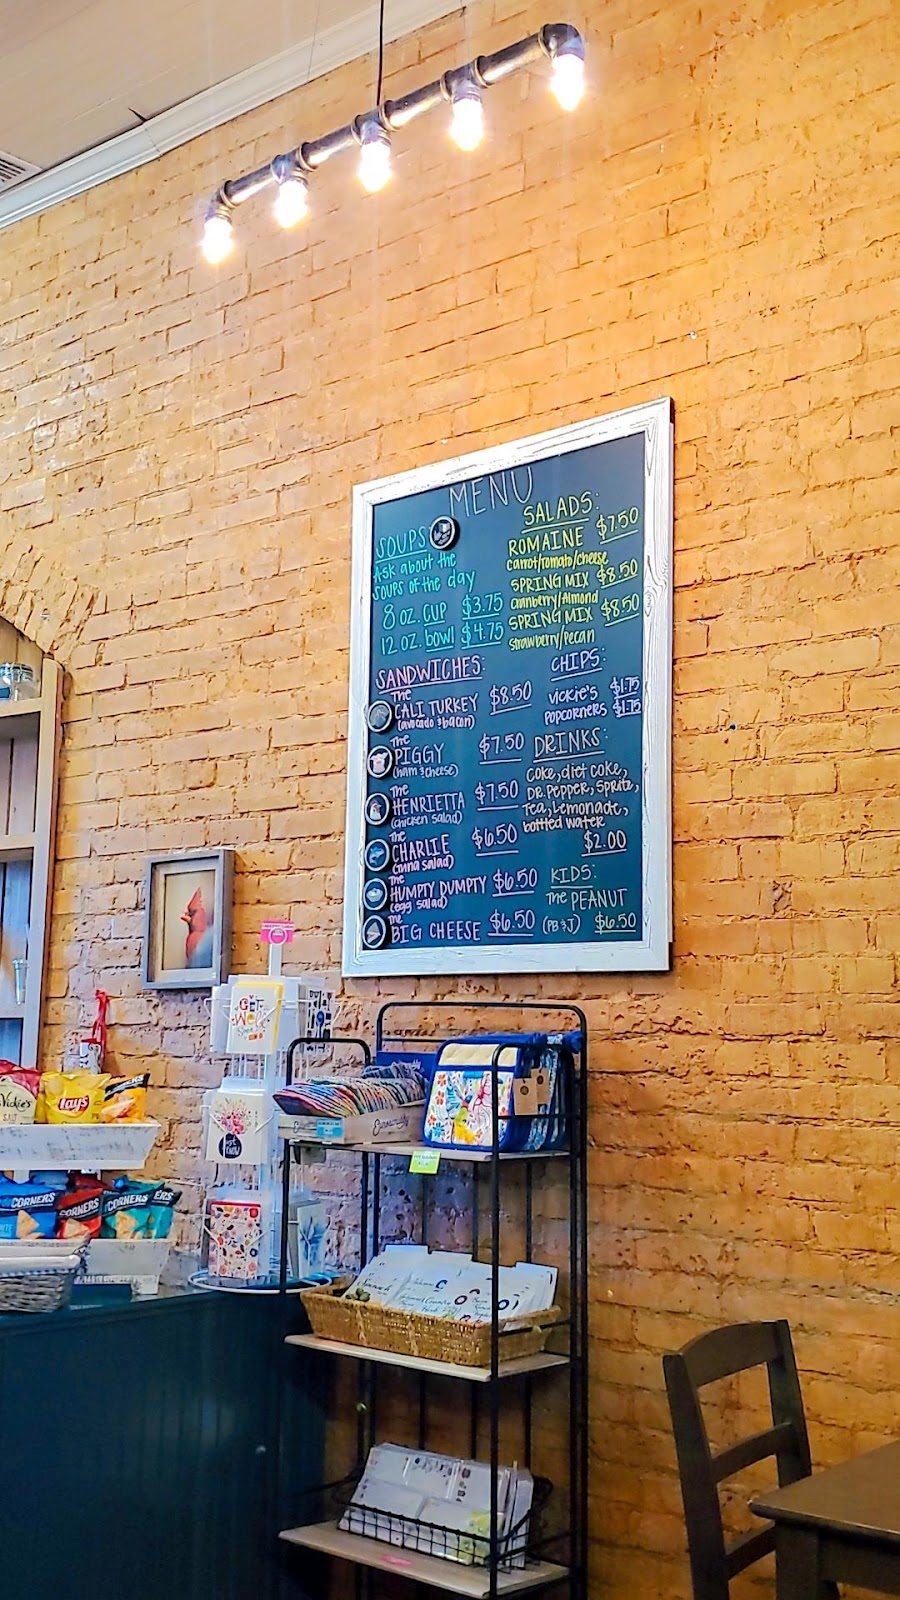 MENU
SOUPS
Ask about the
soups of the day
8 oz. cup $3.75
12 oz. bowl $4.75
SALADS:
ROMAINE $7.50
carrot/tomato/cheese
SPRING MIX $8.50
cranberry/Almond
SPRING MIX $8.50
strawberry/pecan
SANDWICHES:
The
CALI TURKEY $8.50
(avocado & bacon)
The
PIGGY $7.50
(ham & cheese)
The
HENRIETTA $7.50
(chicken salad)
The
CHARLIE $6.50
(tuna salad)
The
HUMPTY DUMPTY $6.50
(egg salad)
The
BIG CHEESE $6.50
CHIPS:
Vickie's $1.75
POPCORNERS $1.75
DRINKS:
Coke, diet coke,
DR. PEPPER, Sprite,
Tea, Lemonade,
bottled water
$2.00
KIDS:
The PEANUT
(PB & J) $6.50
GET
Well
Soon
Vickie's
SALT
Lay's
CORNERS
CORNERS
CORNERS
ERS